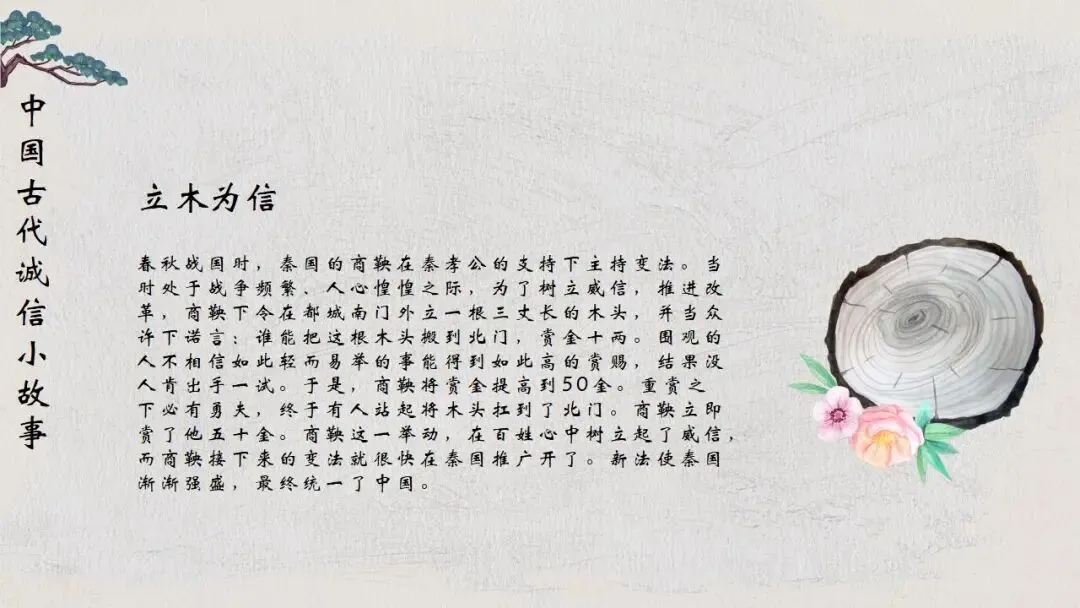 中国古代诚信小故事
立木为信
春秋战国时，秦国的商鞅在秦孝公的支持下主持变法。当
时处于战争频繁、人心惶惶之际，为了树立威信，推进改
革，商鞅下令在都城南门外立一根三丈长的木头，并当众
许下诺言：谁能把这根木头搬到北门，赏金十两。围观的
人不相信如此轻而易举的事能得到如此高的赏赐，结果没
人肯出手一试。于是，商鞅将赏金提高到50金。重赏之
下必有勇夫，终于有人站起将木头扛到了北门。商鞅立即
赏了他五十金。商鞅这一举动，在百姓心中树立起了威信，
而商鞅接下来的变法就很快在秦国推广开了。新法使秦国
渐渐强盛，最终统一了中国。